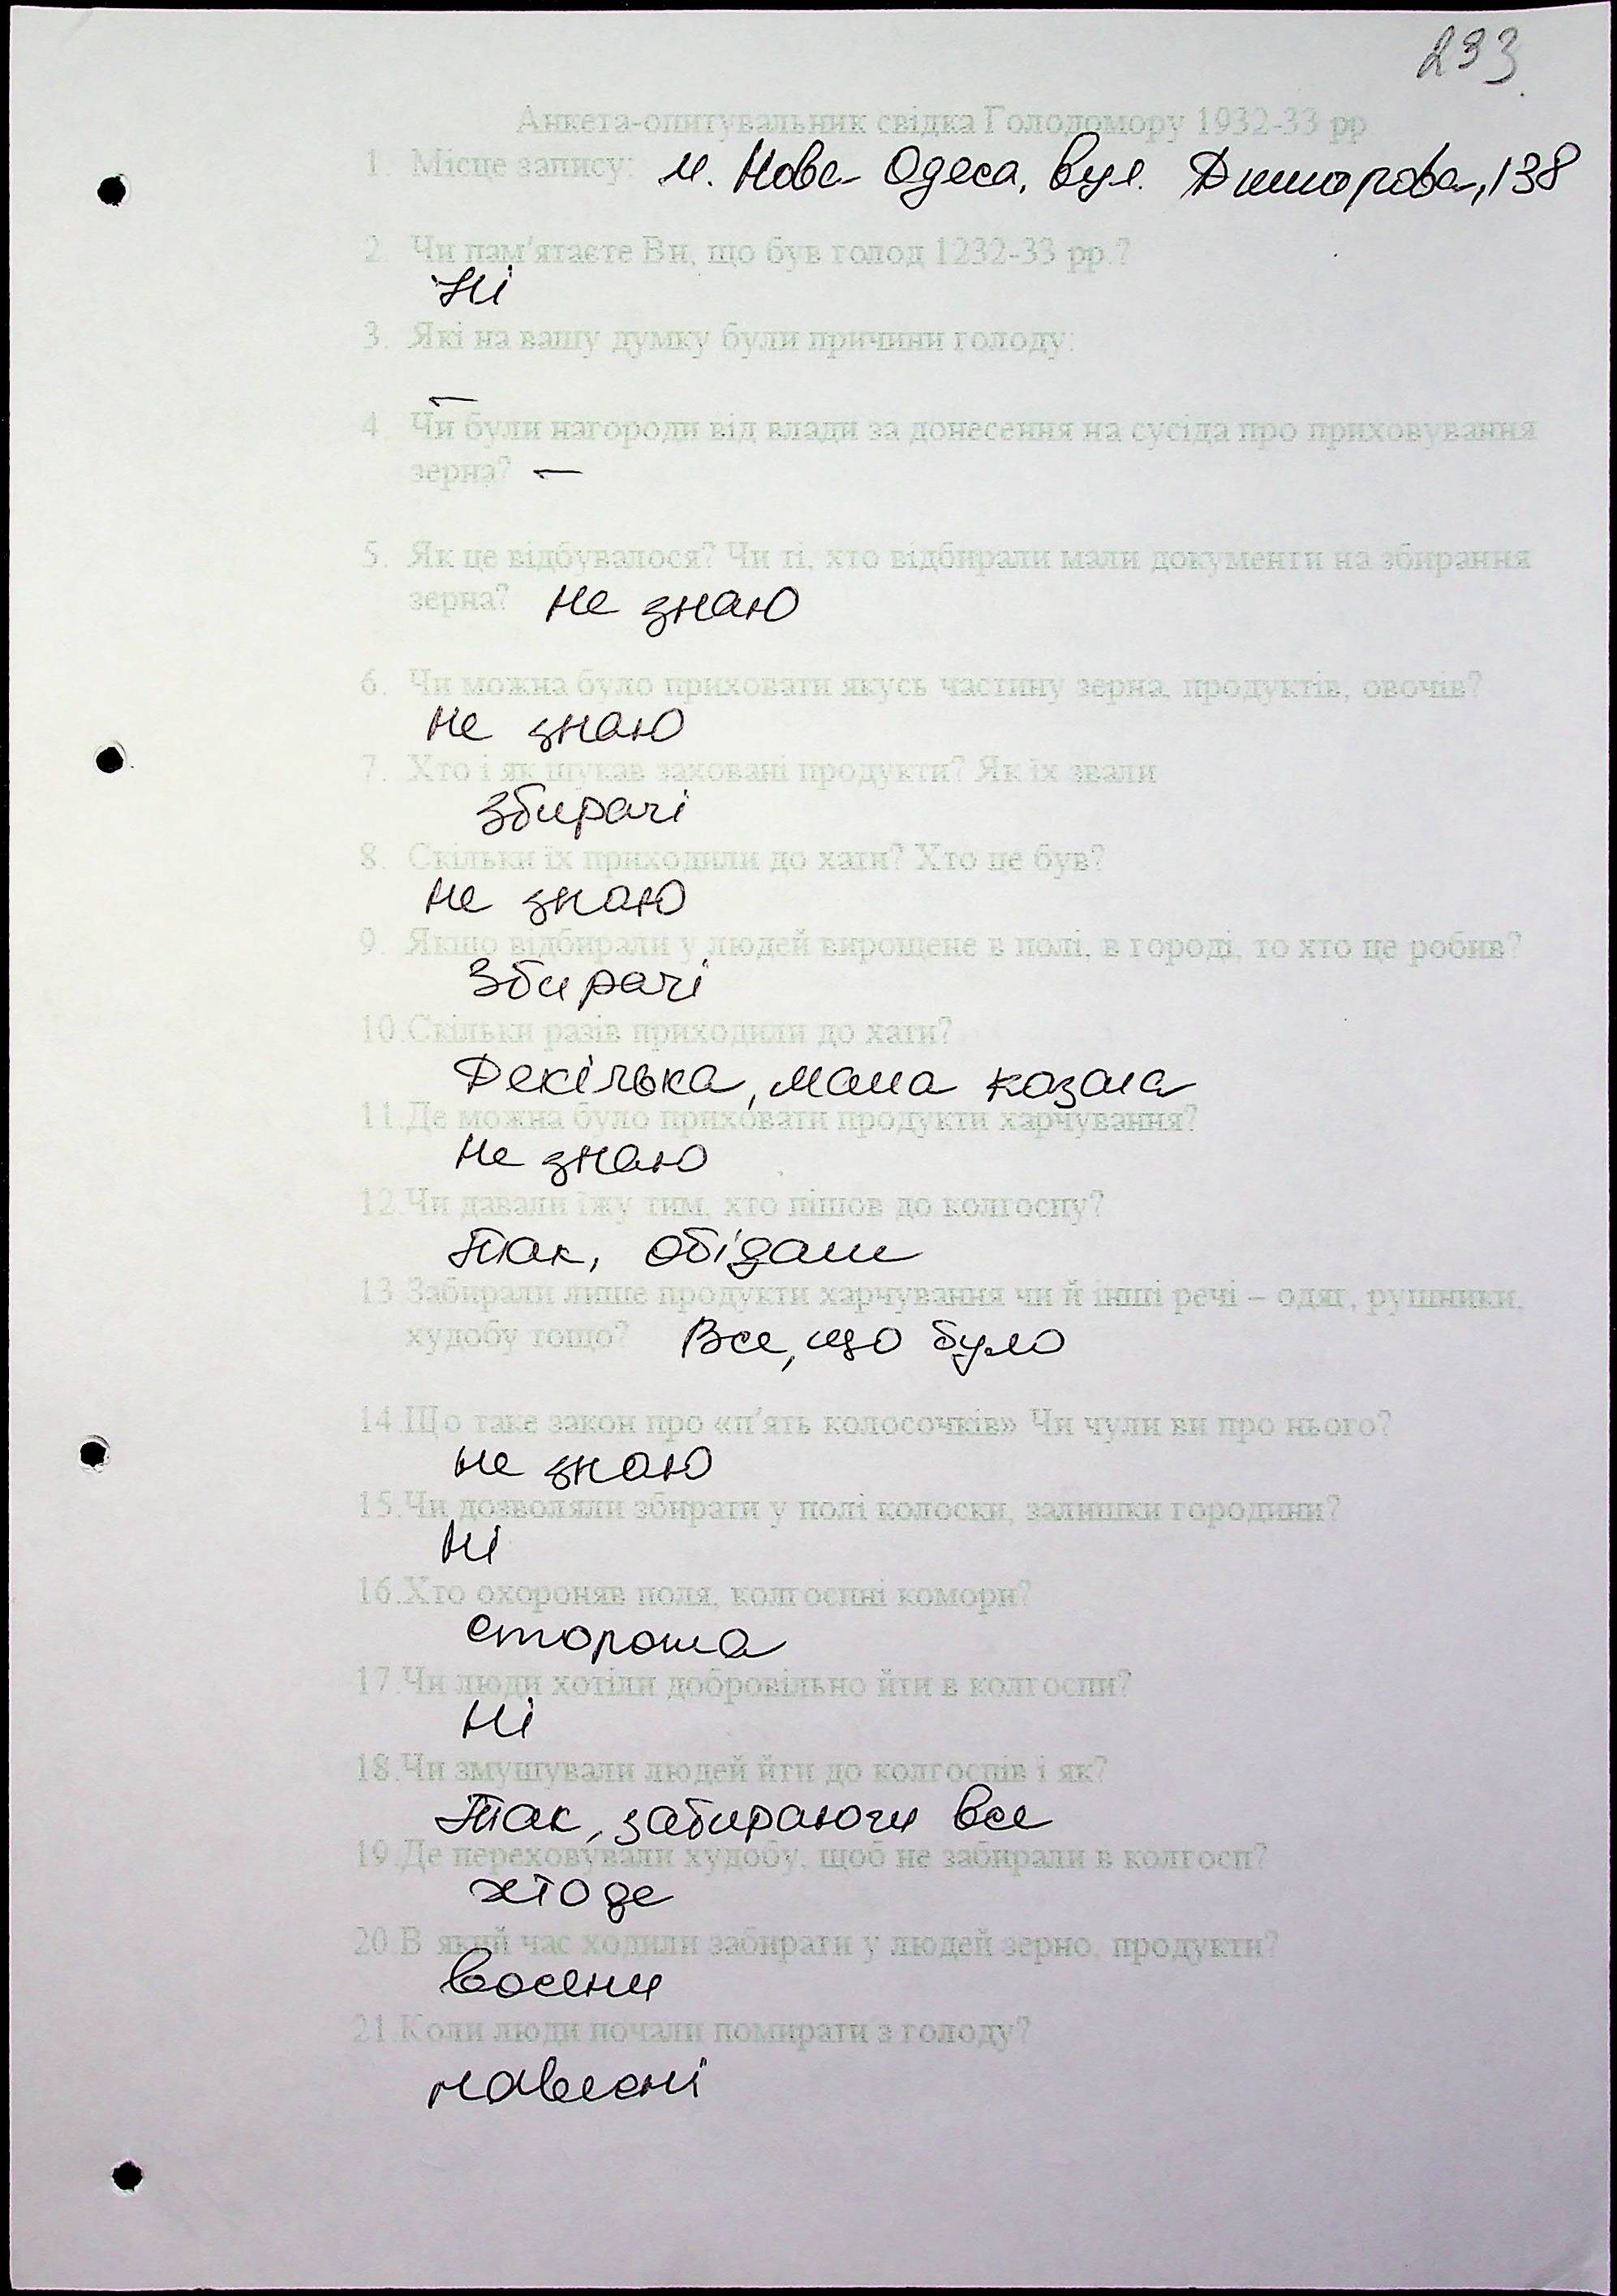 233
Анкета-опитувальник свідка Голодомору 1932-33 рр
1. Місце запису: м. Нова Одеса, вул. Дмитрова, 138
2. Чи пам'ятаєте Ви, що був голод 1232-33 рр.?
Ні
3. Які на вашу думку були причини голоду:
—
4. Чи були нагороди від влади за донесення на сусіда про приховування
зерна? —
5. Як це відбувалося? Чи ті, хто відбирали мали документи на збирання
зерна? не знаю
6. Чи можна було приховати якусь частину зерна, продуктів, овочів?
не знаю
7. Хто і як шукав заховані продукти? Як їх звали
збирачі
8. Скільки їх приходили до хати? Хто це був?
не знаю
9. Якщо відбирали у людей вирощене в полі, в городі, то хто це робив?
Збирачі
10.Скільки разів приходили до хати?
Декілька, мама казала
11.Де можна було приховати продукти харчування?
Не знаю
12.Чи давали їжу тим, хто пішов до колгоспу?
Так, обідали
13.Забирали лише продукти харчування чи й інші речі – одяг, рушники,
худобу тощо? Все, що було
14.Що таке закон про «п'ять колосочків» Чи чули ви про нього?
не знаю
15.Чи дозволяли збирати у полі колоски, залишки городини?
Ні
16.Хто охороняв поля, колгоспні комори?
сторожа
17.Чи люди хотіли добровільно йти в колгоспи?
Ні
18.Чи змушували людей йти до колгоспів і як?
Так, забираючи все
19.Де переховували худобу, щоб не забирали в колгосп?
хто де
20.В який час ходили забирати у людей зерно, продукти?
восени
21.Коли люди почали помирати з голоду?
навесні